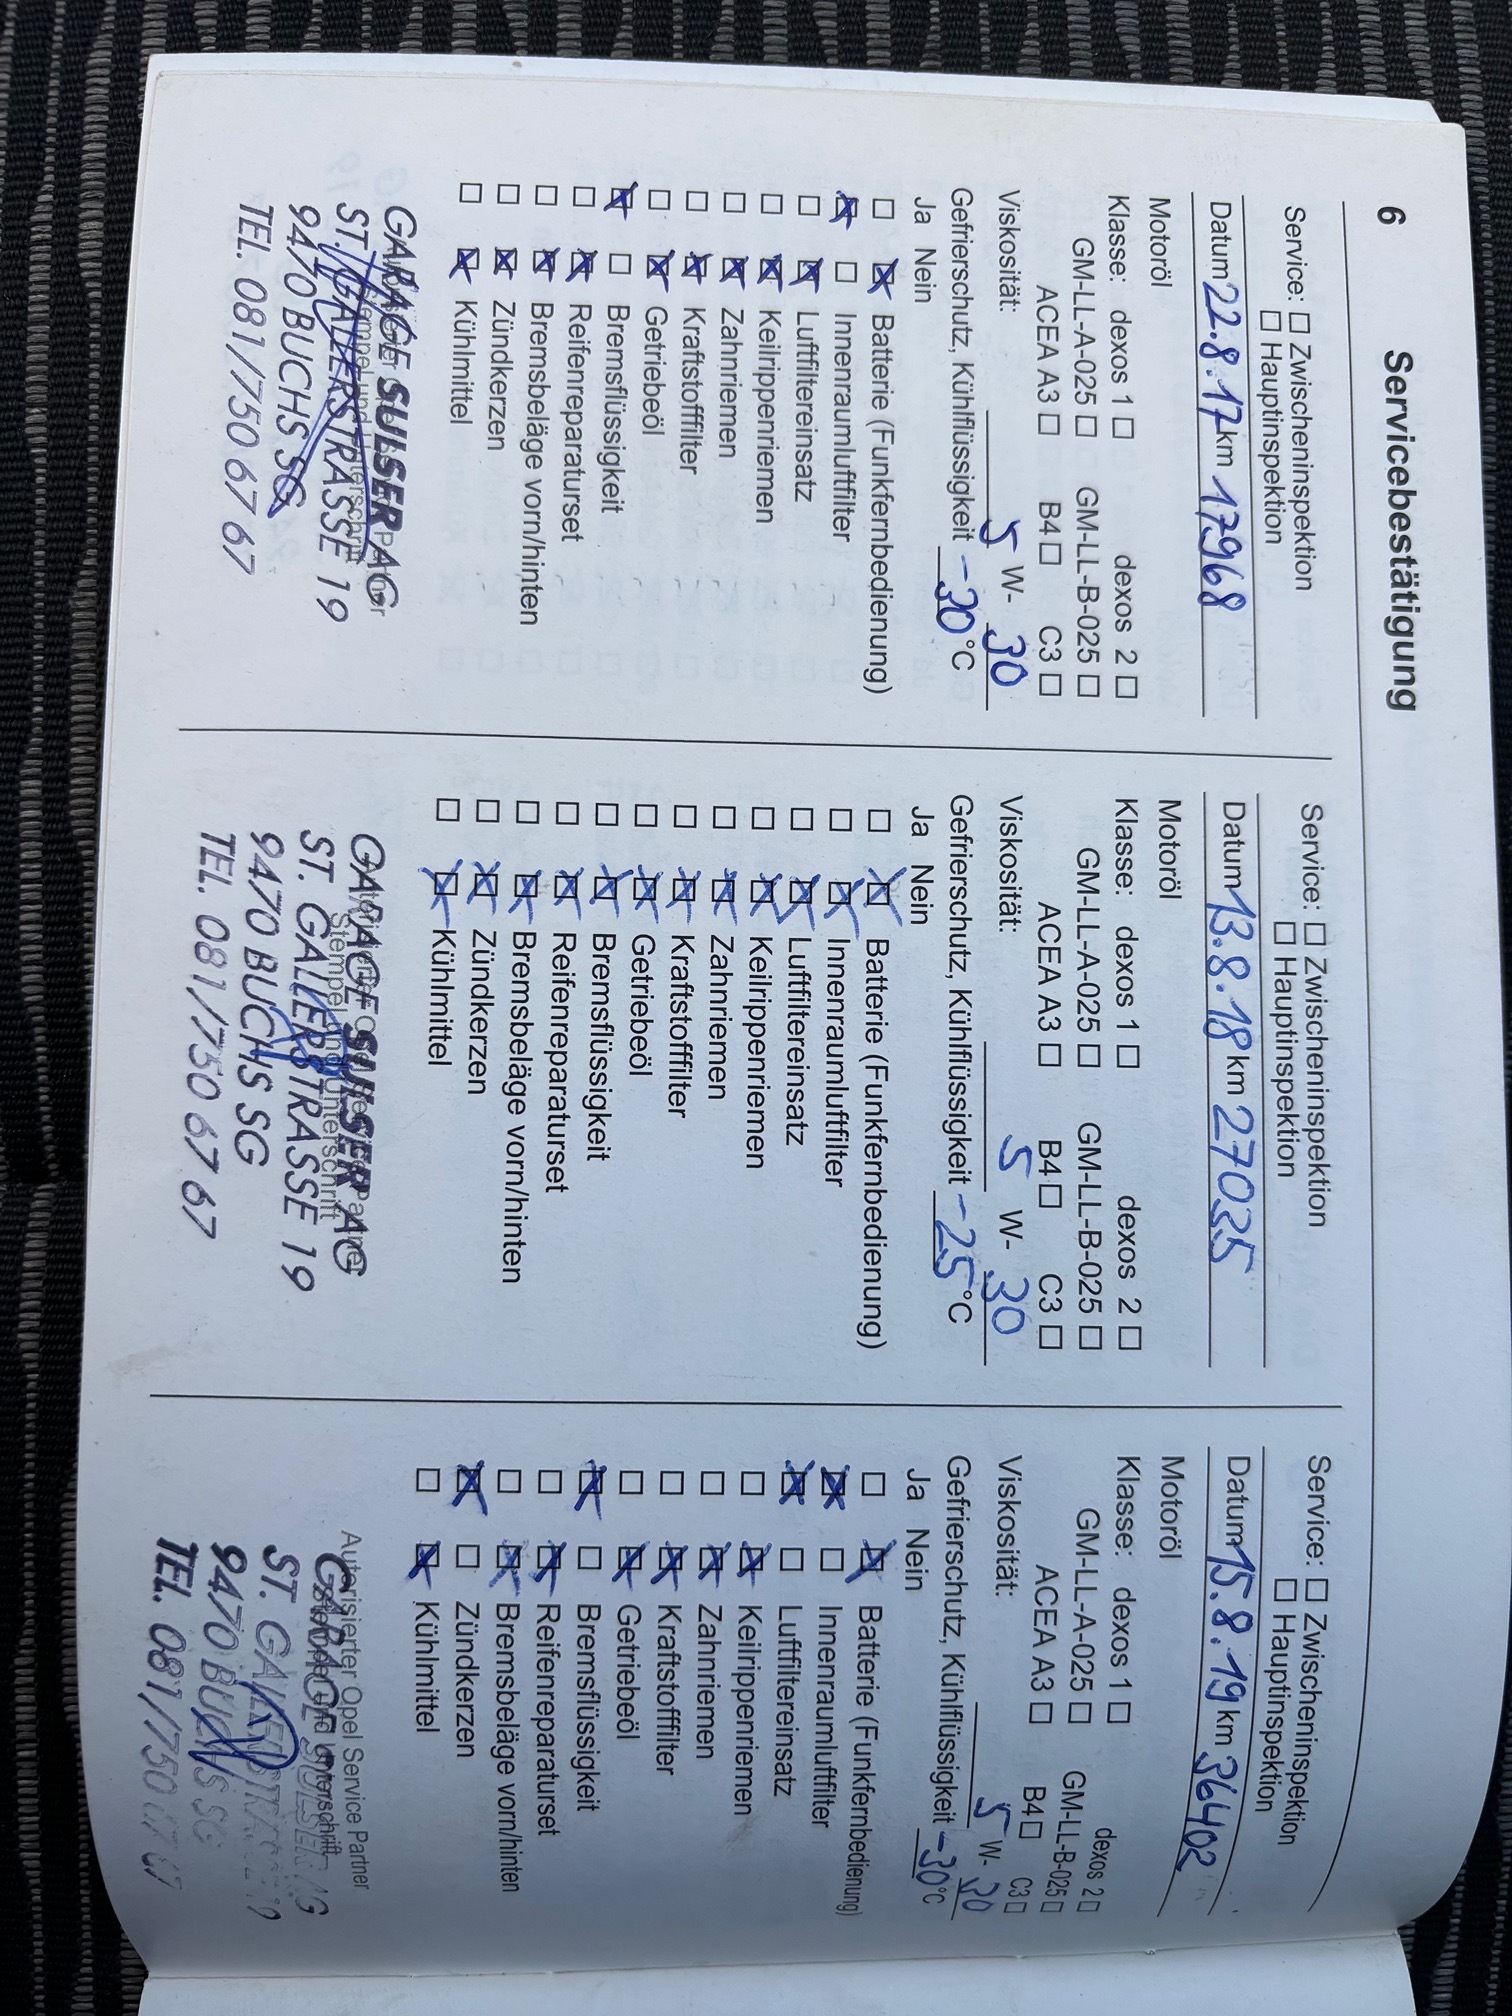 6 Servicebestätigung
Service: ☐ Zwischeninspektion
☐ Hauptinspektion
Datum 22.8.17 km 17968
Motoröl
Klasse: dexos 1 ☐ dexos 2 ☐
GM-LL-A-025 ☐ GM-LL-B-025 ☐
ACEA A3 ☐ B4 ☐ C3 ☐
Viskosität: 5 W- 30
Gefrierschutz, Kühlflüssigkeit -30 °C
Ja Nein
☐ ☒ Batterie (Funkfernbedienung)
☒ ☐ Innenraumluftfilter
☐ ☒ Luftfiltereinsatz
☐ ☒ Keilrippenriemen
☐ ☒ Zahnriemen
☐ ☒ Kraftstofffilter
☐ ☒ Getriebeöl
☒ ☐ Bremsflüssigkeit
☐ ☒ Reifenreparaturset
☐ ☒ Bremsbeläge vorn/hinten
☐ ☒ Zündkerzen
☐ ☒ Kühlmittel
GARAGE SULSER AG
ST. GALLERSTRASSE 19
9470 BUCHS SG
TEL. 081/750 67 67
Service: ☐ Zwischeninspektion
☐ Hauptinspektion
Datum 13.8.18 km 27035
Motoröl
Klasse: dexos 1 ☐ dexos 2 ☐
GM-LL-A-025 ☐ GM-LL-B-025 ☐
ACEA A3 ☐ B4 ☐ C3 ☐
Viskosität: 5 W- 30
Gefrierschutz, Kühlflüssigkeit -25 °C
Ja Nein
☐ ☒ Batterie (Funkfernbedienung)
☐ ☒ Innenraumluftfilter
☐ ☒ Luftfiltereinsatz
☐ ☒ Keilrippenriemen
☐ ☒ Zahnriemen
☐ ☒ Kraftstofffilter
☐ ☒ Getriebeöl
☐ ☒ Bremsflüssigkeit
☐ ☒ Reifenreparaturset
☐ ☒ Bremsbeläge vorn/hinten
☐ ☒ Zündkerzen
☐ ☒ Kühlmittel
GARAGE SULSER AG
Stempel und Unterschrift
ST. GALLERSTRASSE 19
9470 BUCHS SG
TEL. 081/750 67 67
Service: ☐ Zwischeninspektion
☐ Hauptinspektion
Datum 15.8.19 km 36402
Motoröl
Klasse: dexos 1 ☐ dexos 2 ☐
GM-LL-A-025 ☐ GM-LL-B-025 ☐
ACEA A3 ☐ B4 ☐ C3 ☐
Viskosität: 5 W- 30
Gefrierschutz, Kühlflüssigkeit -30 °C
Ja Nein
☐ ☒ Batterie (Funkfernbedienung)
☒ ☐ Innenraumluftfilter
☒ ☐ Luftfiltereinsatz
☐ ☒ Keilrippenriemen
☐ ☒ Zahnriemen
☐ ☒ Kraftstofffilter
☐ ☒ Getriebeöl
☒ ☐ Bremsflüssigkeit
☐ ☒ Reifenreparaturset
☐ ☒ Bremsbeläge vorn/hinten
☒ ☐ Zündkerzen
☐ ☒ Kühlmittel
Autorisierter Opel Service Partner
GARAGE SULSER AG
ST. GALLERSTRASSE 19
9470 BUCHS SG
TEL. 081/750 67 67